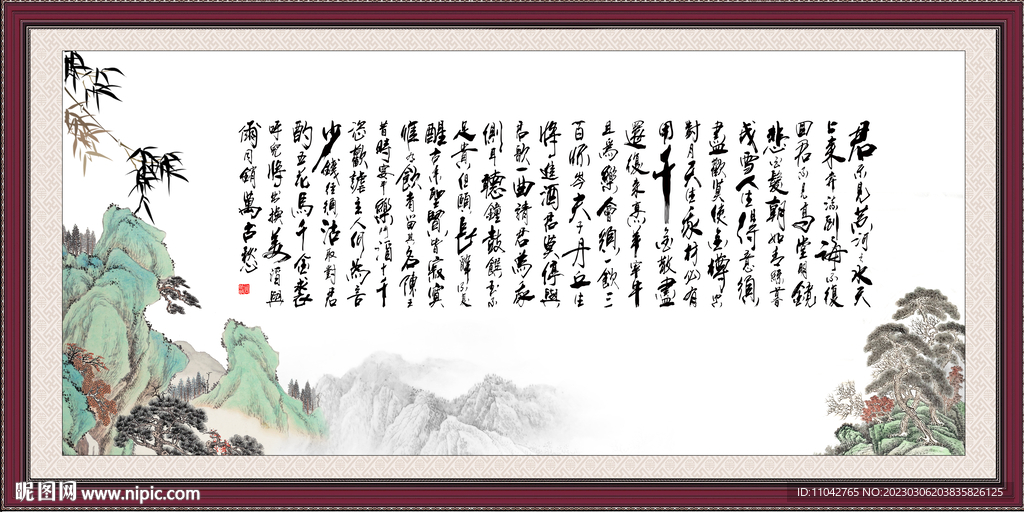 君不見黃河之水天
上來奔流到海不復
回君不見高堂明鏡
悲白髮朝如青絲暮
成雪人生得意須
盡歡莫使金樽空
對月天生我材必有
用千金散盡
還復來烹羊宰牛
且為樂會須一飲三
百杯岑夫子丹丘生
將進酒君莫停與
君歌一曲請君為我
側耳聽鐘鼓饌玉不
足貴但願長醉不復
醒古來聖賢皆寂寞
惟有飲者留其名陳王
昔時宴平樂斗酒十千
恣歡謔主人何為言
少錢徑須沽取對君
酌五花馬千金裘
呼兒將出換美酒與
爾同銷萬古愁
昵图网 www.nipic.com
ID:11042765 NO:20230306203835826125